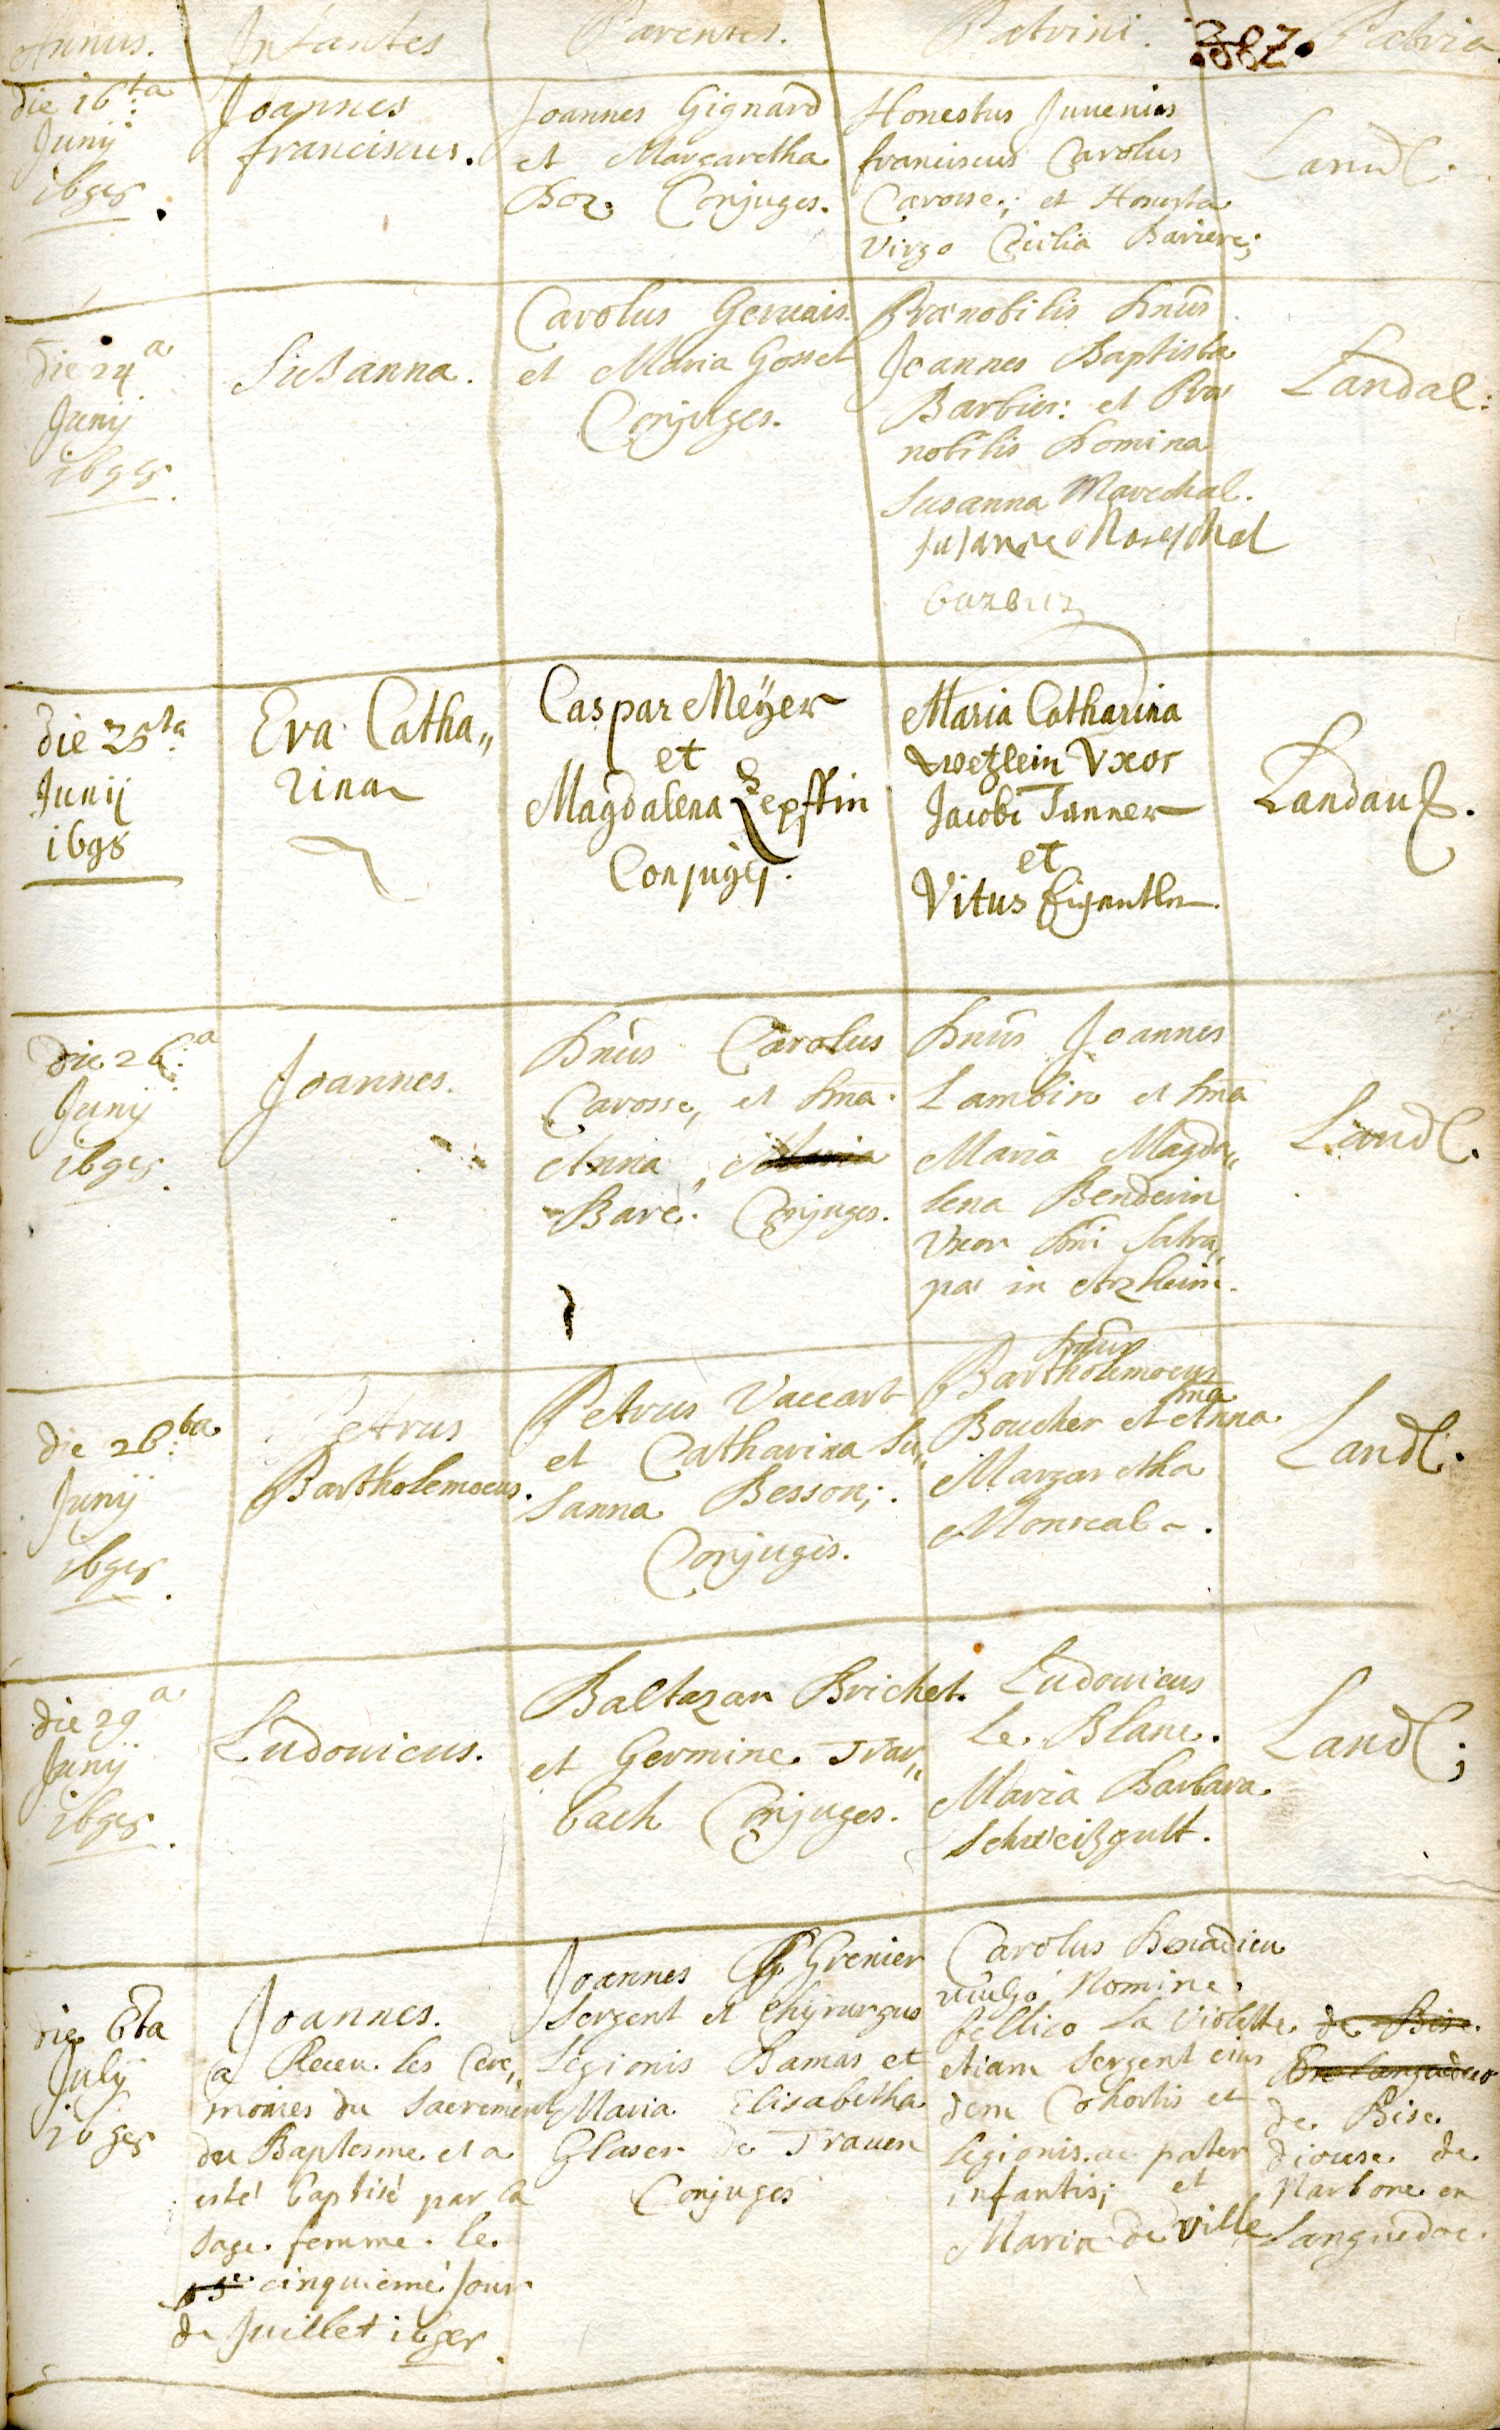 Annus. Infantes Parentes. Patrini. Patria
382.
die 16ta
Junij
1698.
Joannes
franciscus.
Joannes Gignard
et Margaretha
Boz. Conjuges.
Honestus Juuenis
franciscus Carolus
Carosse; et Honesta
Virgo Cicilia Bariere;
Landl.
die 24a
Junij
1698.
Susanna.
Carolus Geruais.
et Maria Gosset
Conjuges.
Prænobilis Dnus
Joannes Baptista
Barbier: et Præ
nobilis Domina
Susanna Marechal.
susanne Mareschal
Landal:
die 25ta
Junij
1698
Eva Catha„
rina
Caspar Meÿer
et
Magdalena Zepffin
Conjuges.
Maria Catharina
Vxor
Jacobi Tanner
et
Vitus
Landau.
Die 26:a
Junij
1698.
Joannes.
Dnus Carolus
Carosse, et Dna
Anna, Maria
Baré. Conjuges.
Dnus Joannes
Lambin et Dna
Maria Magda„
lena Benderin
Vxor Dni Satra„
pæ in Arzheim.
Landl.
die 26:ta
Junij
1698.
Petrus
Bartholemoeus.
Petrus Vaccart
et Catharina Su„
sanna Besson;
Conjuges.
Dnus
Bartholemoeus
Boucher et Dna Anna
Margaretha
Monreal.
Landl.
die 29a
Junij
1698.
Ludouicus.
Baltazar Brichet.
et Germine Trar„
bach Conjuges.
Ludouicus
Le Blanc.
Maria Barbara
Schweißgult.
Landl;
die 6ta
July
1698
Joannes.
a Receu les Cere„
monies du Sacrement
du Baptesme et a
esté baptisé par la
sage femme le
cinquiemé Jour
de Juillet 1698.
Joannes Grenier
Sergent et Chyrurgus
Legionis Damas et
Maria Elisabetha
Glaser de Trauen
Conjuges
Carolus Benadieu
vulgo Nomine
bellico La Violette
etiam Sergent eius
dem Cohortis et
Legionis. ac pater
infantis; et
Maria de ville
de Bise
de Bise
diocese de
Narbone en
Languedoc.